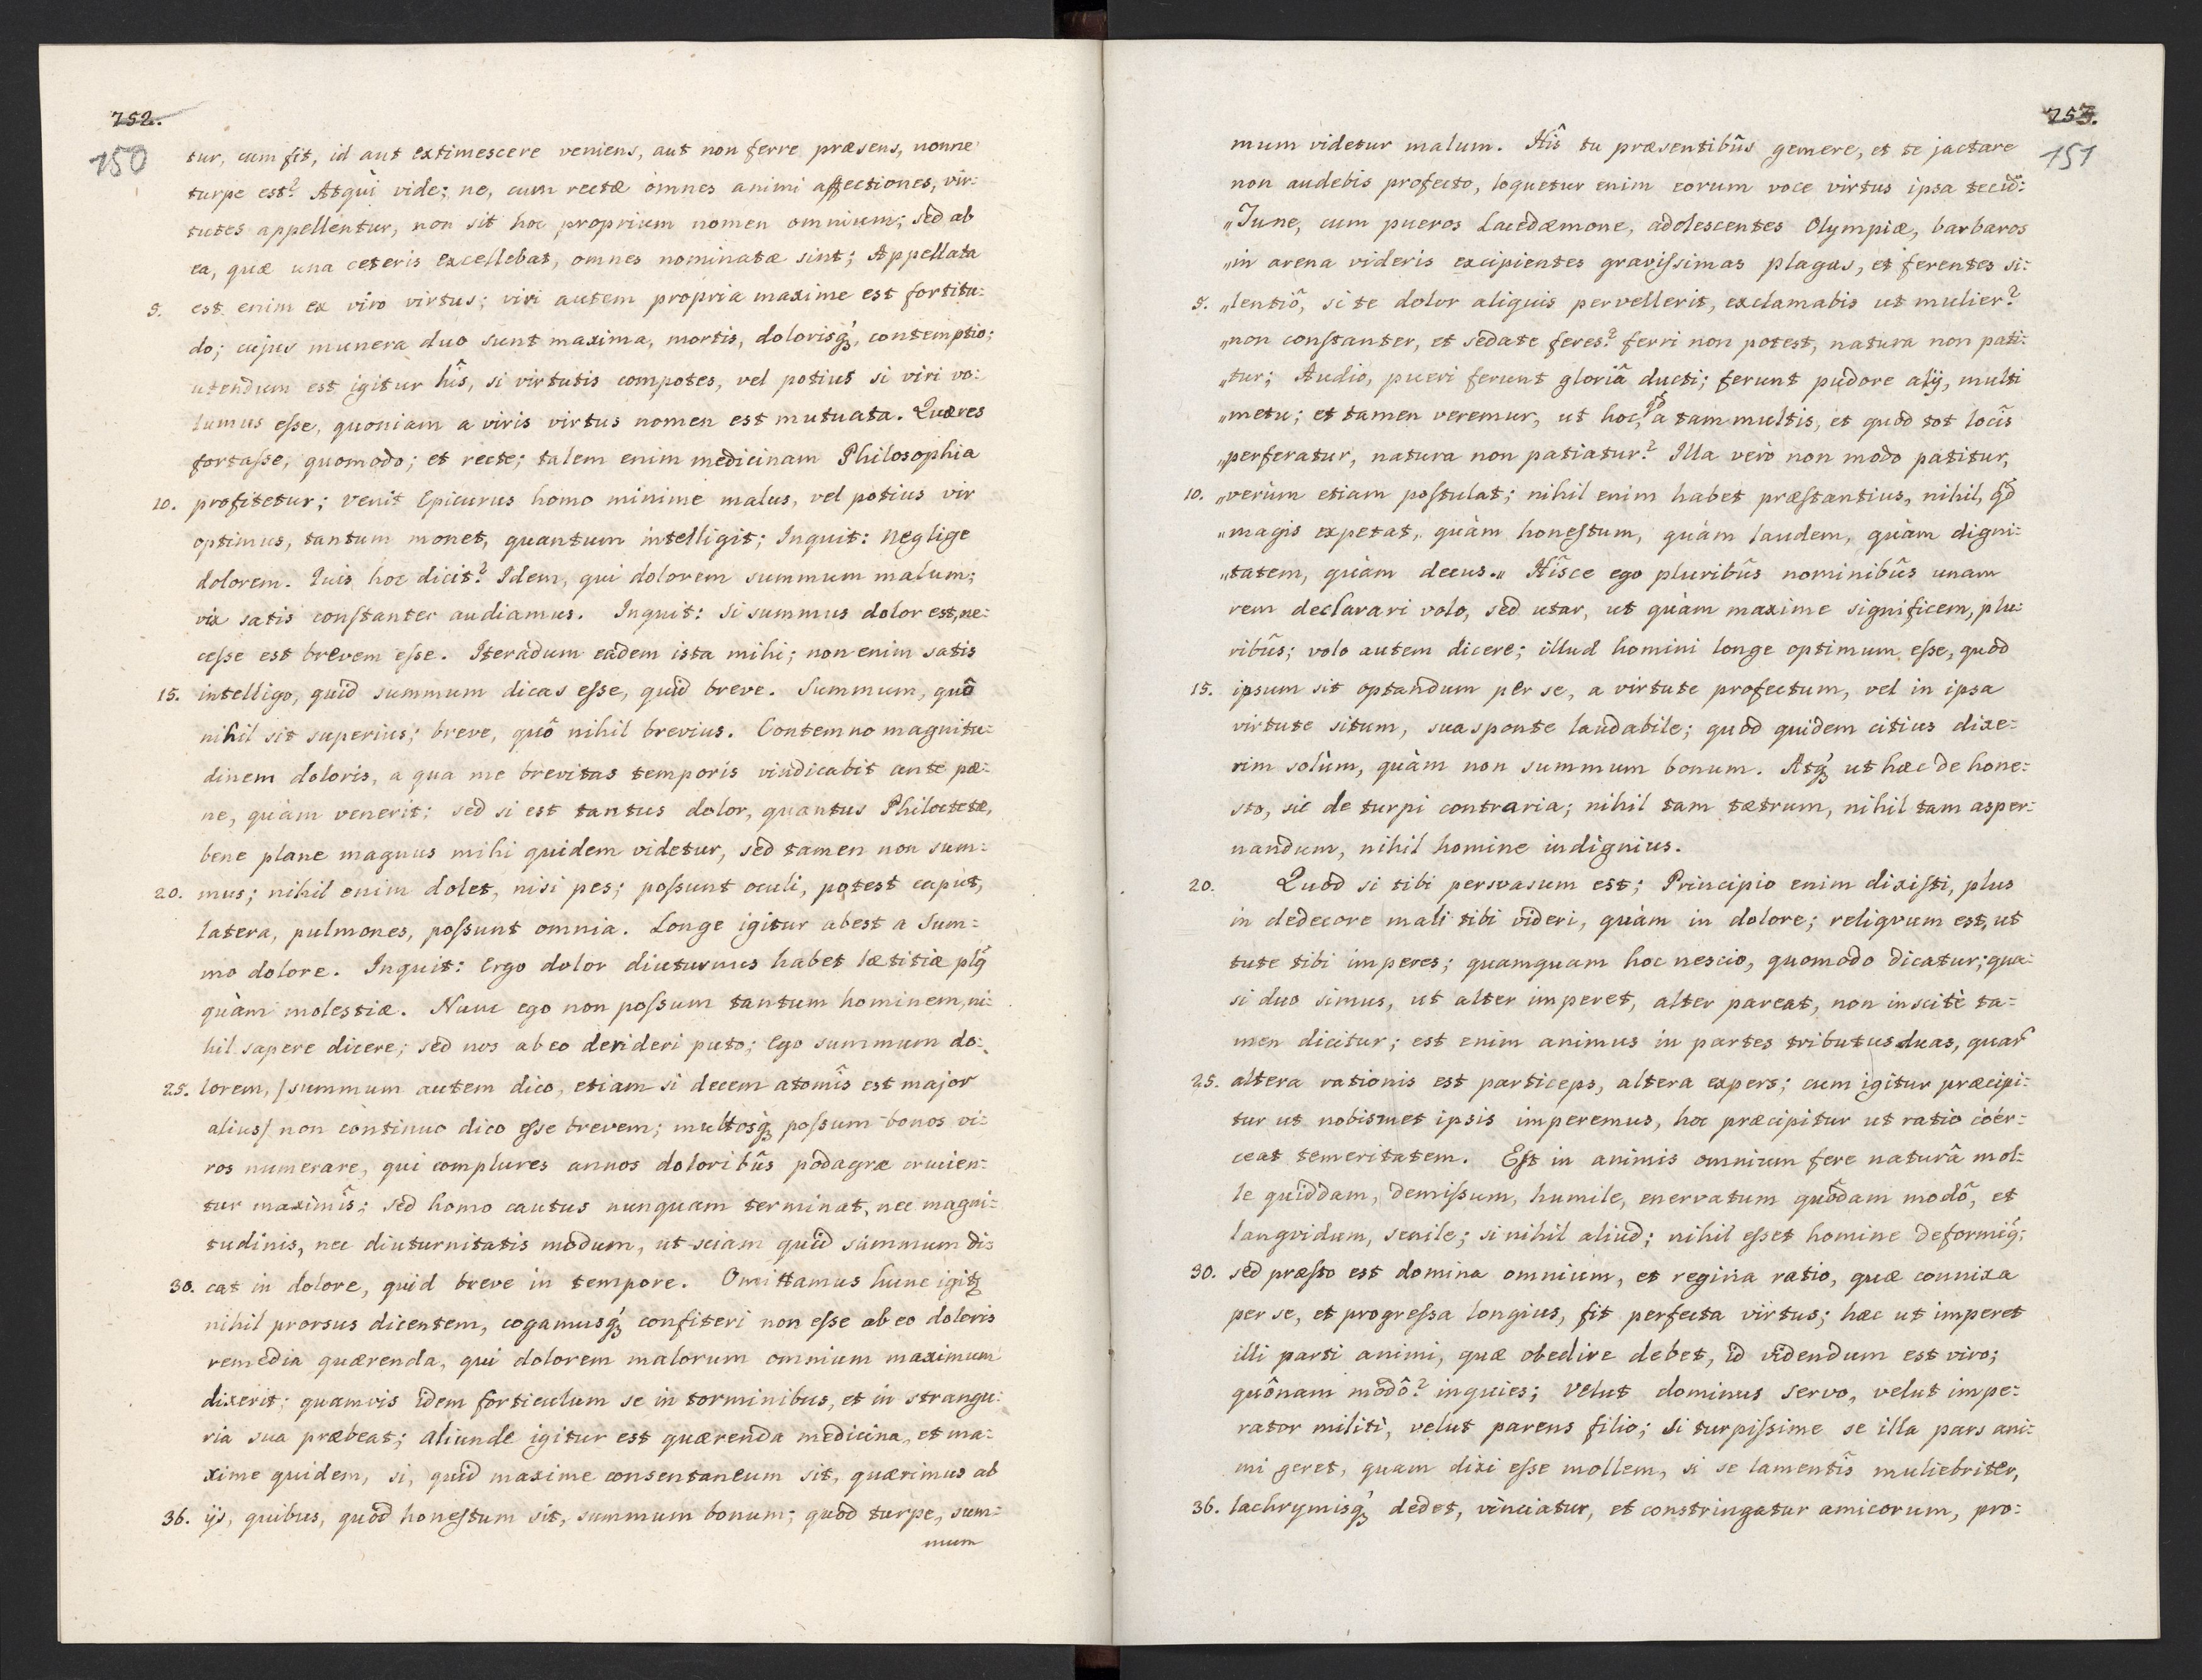 752.
150
tur, cum fit, id aut extimescere veniens, aut non ferre præsens, nonne
turpe est? Atqui vide; ne, cum rectæ omnes animi affectiones, vir:
tutes appellentur, non sit hoc proprium nomen omnium; sed ab
ea, quæ una ceteris excellebat, omnes nominatæ sint; Appellata
5. est enim ex viro virtus; viri autem propria maxime est fortitu:
do; cujus munera duo sunt maxima, mortis, dolorisq́ꝫ, contemptio;
utendum est igitur hîs, si virtutis compotes, vel potius si viri vo:
lumus eſse, quoniam a viris virtus nomen est mutuata. Quæres
fortaſse, quomodo; et recte; talem enim medicinam Philosophia
10. profitetur; Venit Epicurus homo minime malus, vel potius vir
optimus, tantum monet, quantum intelligit; Inquit: Neglige
dolorem. Quis hoc dicit? Idem, qui dolorem summum malum;
vix satis conſtanter audiamus. Inquit: Si summus dolor est, ne:
ceſse est brevem eſse. Iteradum eadem ista mihi; non enim satis
15. intelligo, quid summum dicas eſse, quid breve. Summum, quô
nihil sit superius; breve, quô nihil brevius. Contemno magnitu:
dinem doloris, a qua me brevitas temporis vindicabit ante pæ:
ne, quàm venerit; sed si est tantus dolor, quantus Philoctetæ,
bene plane magnus mihi quidem videtur, sed tamen non sum:
20. mus; nihil enim dolet, nisi pes; poſsunt oculi, potest caput,
latera, pulmones, poſsunt omnia. Longe igitur abest a Sum=
mo dolore. Inquit: Ergo dolor diuturnus habet lætitiæ pl9̃
quàm molestiæ. Nunc ego non poſsum tantum hominem, ni:
hil sapere dicere; sed nos ab eo derideri puto; Ego summum do:
25. lorem, /summum autem dico, etiam si decem atomîs est major
alius/ non continuo dico eſse brevem; multosq́ꝫ poſsum bonos vi:
ros numerare, qui complures annos doloribûs podagræ crucien:
tur maximîs; sed homo cautus nunquam terminat, nec magni=
tudinis, nec diuturnitatis modum, ut sciam quid summum di=
30. cat in dolore, quid breve in tempore. Omittamus hunc igitꝫ
nihil prorsus dicentem, cogamusq́ꝫ confiteri non eſse ab eo doloris
remedia quærenda, qui dolorem malorum omnium maximum
dixerit; quamvis idem forticulum se in torminibus, et in strangu:
ria sua præbeat; aliunde igitur est quærenda medicina, et ma:
xime quidem, si, quid maxime consentaneum sit, quærimus ab
36. ijs, quibus, quod honeſtum sit, summum bonum; quod turpe, sum=
mum
753.
151
mum videtur malum. Hîs tu præsentibûs gemere, et te jactare
non audebis profecto, loquetur enim eorum voce virtus ipsa tecũ:
„Tune, cum pueros Lacedæmone, adolescentes Olympiæ, barbaros
„in arena videris excipientes graviſsimas plagas, et ferentes si:
5. „lentiô, si te dolor aliquis pervellerit, exclamabis ut mulier?
„non conſtanter, et sedate feres? ferri non potest, natura non pati:
„tur; Audio, pueri ferunt gloriâ ducti; ferunt pudore alij, multi
„metu; et tamen veremur, ut hoc, qd̃ a tam multis, et quod tot locîs
„perferatur, natura non patiatur? Illa verò non modo patitur,
10. „verùm etiam poſtulat; nihil enim habet præſtantius, nihil, qd̃
„magis expetat, quàm honeſtum, quàm laudem, quàm digni:
„tatem, quàm decus.„ Hîsce ego pluribûs nominibûs unam
rem declarari volo, sed utar, ut quàm maxime significem, plu:
ribûs; volo autem dicere; illud homini longe optimum eſse, quod
15. ipsum sit optandum per se, a virtute profectum, vel in ipsa
virtute situm, sua sponte laudabile; quod quidem citius dixe=
rim solùm, quàm non summum bonum. Atq́ꝫ ut hæc de hone:
sto, sic de turpi contraria; nihil tam tætrum, nihil tam asper:
nandum, nihil homine indignius.
20. Quod si tibi persvasum est; Principio enim dixiſti, plus
in dedecore mali tibi videri, quàm in dolore; reliqvum est, ut
tute tibi imperes; quamquam hoc nescio, quomodo dicatur; qua:
si duo simus, ut alter imperet, alter pareat, non inscitè ta=
men dicitur; est enim animus in partes tributus duas, quar̃
25. altera rationis est particeps, altera expers; cum igitur præcipi:
tur ut nobismet ipsis imperemus, hoc præcipitur ut ratio coér=
ceat temeritatem. Eſt in animis omnium fere naturâ mol=
le quiddam, demiſsum, humile, enervatum quôdam modô, et
langvidum, senile; si nihil aliud; nihil eſset homine deformi9:
30. sed præſto est domina omnium, et regina ratio, quæ connixa
per se, et progreſsa longius, fit perfecta virtus; hæc ut imperet
illi parti animi, quæ obedire debet, id videndum est viro;
quônam modô? inquies; Velut dominus servo, velut impe:
rator militi, velut parens filio; Si turpiſsime se illa pars ani:
mi geret, quam dixi eſse mollem, si se lamentîs muliebriter,
36. lachrymisq́ꝫ dedet, vinciatur, et constringatur amicorum, pro: